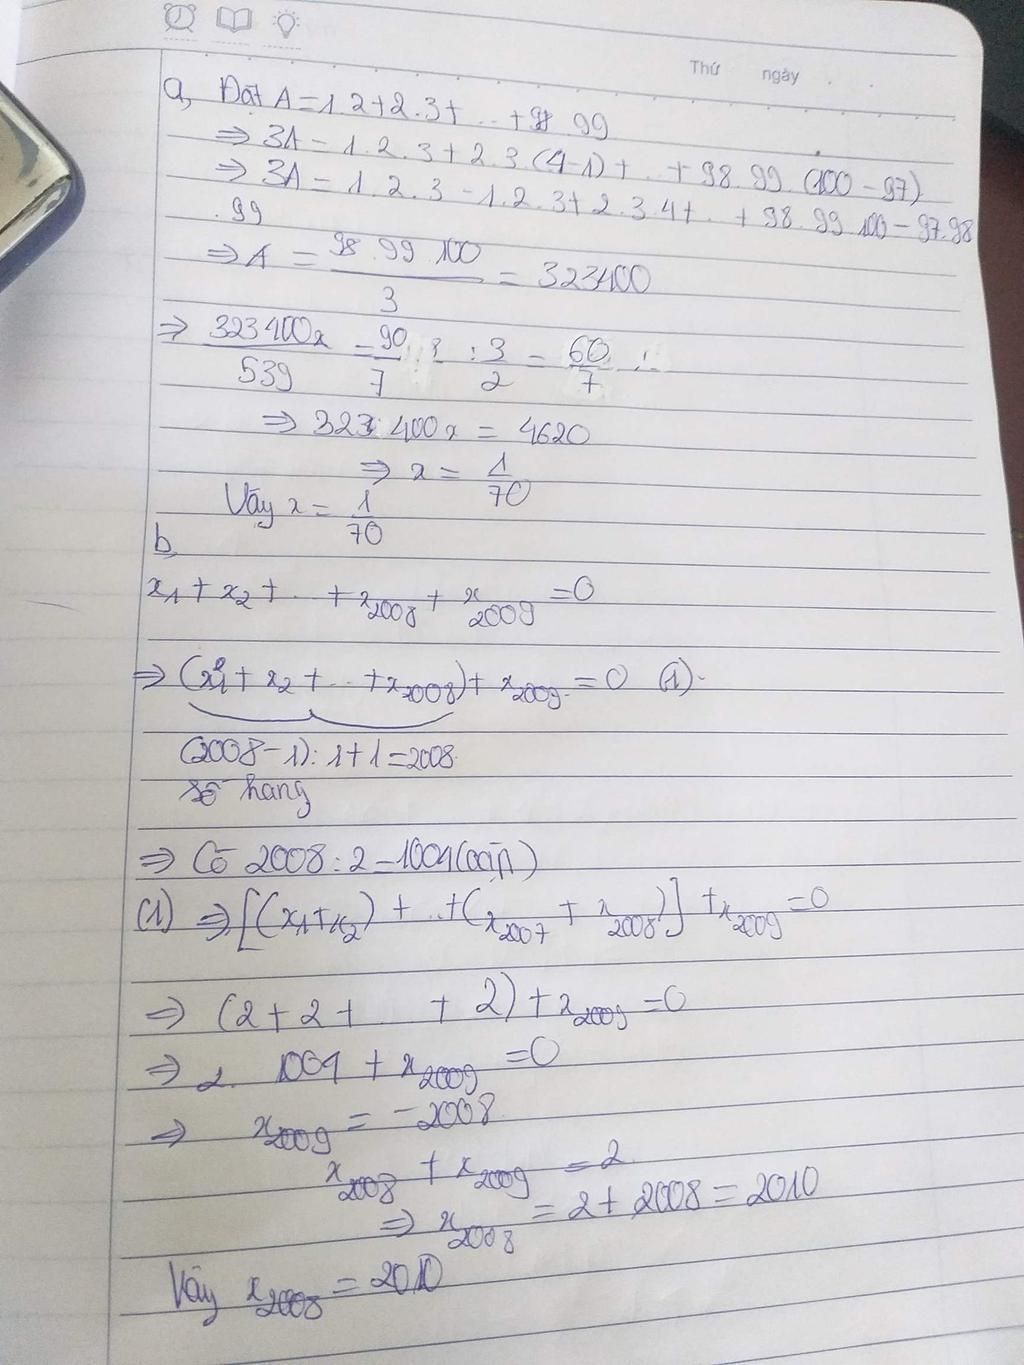 Thứ ngày
a, Đặt A = 1.2 + 2.3 + ... + 98.99
⇒ 3A = 1.2.3 + 2.3(4-1) + ... + 98.99.(100-97)
⇒ 3A = 1.2.3 - 1.2.3 + 2.3.4 + ... + 98.99.100 - 97.98
.99
⇒ A = 98.99.100 / 3 = 323400
⇒ 323400x / 539 = 90/7 : 3/2 = 60/7
⇒ 323400x = 4620
⇒ x = 1/70
Vậy x = 1/70
b,
x₁ + x₂ + ... + x₂₀₀₈ + x₂₀₀₉ = 0
⇒ (x₁ + x₂ + ... + x₂₀₀₈) + x₂₀₀₉ = 0 (1)
(2008-1):1+1=2008
số hạng
⇒ Có 2008:2=1004(cặp)
(1) ⇒ [(x₁+x₂) + ... + (x₂₀₀₇ + x₂₀₀₈)] + x₂₀₀₉ = 0
⇒ (2+2+ ... +2) + x₂₀₀₉ = 0
⇒ 2.1004 + x₂₀₀₉ = 0
⇒ x₂₀₀₉ = -2008
x₂₀₀₈ + x₂₀₀₉ = 2
⇒ x₂₀₀₈ = 2 + 2008 = 2010
Vậy x₂₀₀₈ = 2010